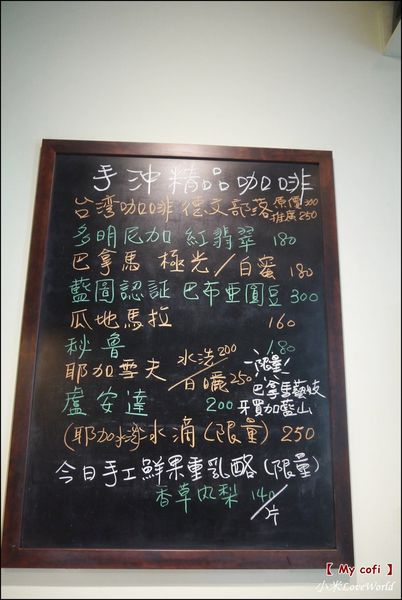 手沖精品咖啡
台灣咖啡 德文部落 原價300 推廣250
多明尼加 紅翡翠 180
巴拿馬 極光/白蜜 180
藍圖認証 巴布亞圓豆 300
瓜地馬拉 160
秘魯 180
耶加雪夫 水洗200/日曬250
限量
巴拿馬藝妓
牙買加藍山
盧安達 200
冰滴(限量) 250
今日手工鮮果重乳酪(限量)
香草肉梨 140/片
【 My cofi 】
小米LoveWorld